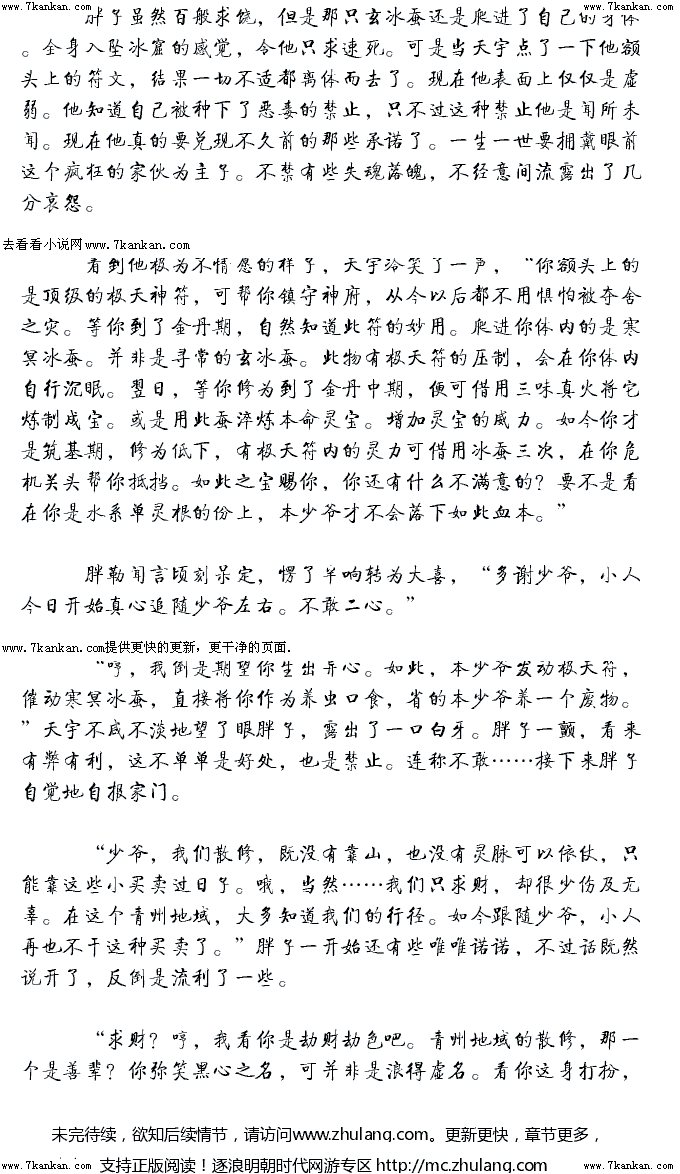 www.7kankan.com www.7kankan.com
胖子虽然百般求饶，但是那只玄冰蚕还是爬进了自己的身体
。全身入坠冰窟的感觉，令他只求速死。可是当天宇点了一下他额
头上的符文，结果一切不适都离体而去了。现在他表面上仅仅是虚
弱。他知道自己被种下了恶毒的禁止，只不过这种禁止他是闻所未
闻。现在他真的要兑现不久前的那些承诺了。一生一世要拥戴眼前
这个疯狂的家伙为主子。不禁有些失魂落魄，不经意间流露出了几
分哀怨。
去看看小说网www.7kankan.com
看到他极为不情愿的样子，天宇冷笑了一声，“你额头上的
是顶级的极天神符，可帮你镇守神府，从今以后都不用惧怕被夺舍
之灾。等你到了金丹期，自然知道此符的妙用。爬进你体内的是寒
冥冰蚕。并非是寻常的玄冰蚕。此物有极天符的压制，会在你体内
自行沉眠。翌日，等你修为到了金丹中期，便可借用三味真火将它
炼制成宝。或是用此蚕淬炼本命灵宝。增加灵宝的威力。如今你才
是筑基期，修为低下，有极天符内的灵力可借用冰蚕三次，在你危
机关头帮你抵挡。如此之宝赐你，你还有什么不满意的？要不是看
在你是水系单灵根的份上，本少爷才不会落下如此血本。”
胖勒闻言顷刻呆定，愣了半响转为大喜，“多谢少爷，小人
今日开始真心追随少爷左右。不敢二心。”
www.7kankan.com提供更快的更新，更干净的页面.
“哼，我倒是期望你生出异心。如此，本少爷发动极天符，
催动寒冥冰蚕，直接将你作为养虫口食，省的本少爷养一个废物。
”天宇不咸不淡地望了眼胖子，露出了一口白牙。胖子一颤，看来
有弊有利，这不单单是好处，也是禁止。连称不敢……接下来胖子
自觉地自报家门。
“少爷，我们散修，既没有靠山，也没有灵脉可以依仗，只
能靠这些小买卖过日子。哦，当然……我们只求财，却很少伤及无
辜。在这个青州地域，大多知道我们的行径。如今跟随少爷，小人
再也不干这种买卖了。”胖子一开始还有些唯唯诺诺，不过话既然
说开了，反倒是流利了一些。
“求财？哼，我看你是劫财劫色吧。青州地域的散修，那一
个是善辈？你弥笑黑心之名，可并非是浪得虚名。看你这身打扮，
未完待续，欲知后续情节，请访问www.zhulang.com。更新更快，章节更多，
支持正版阅读！逐浪明朝时代网游专区 http://mc.zhulang.com
www.7kankan.com www.7kankan.com